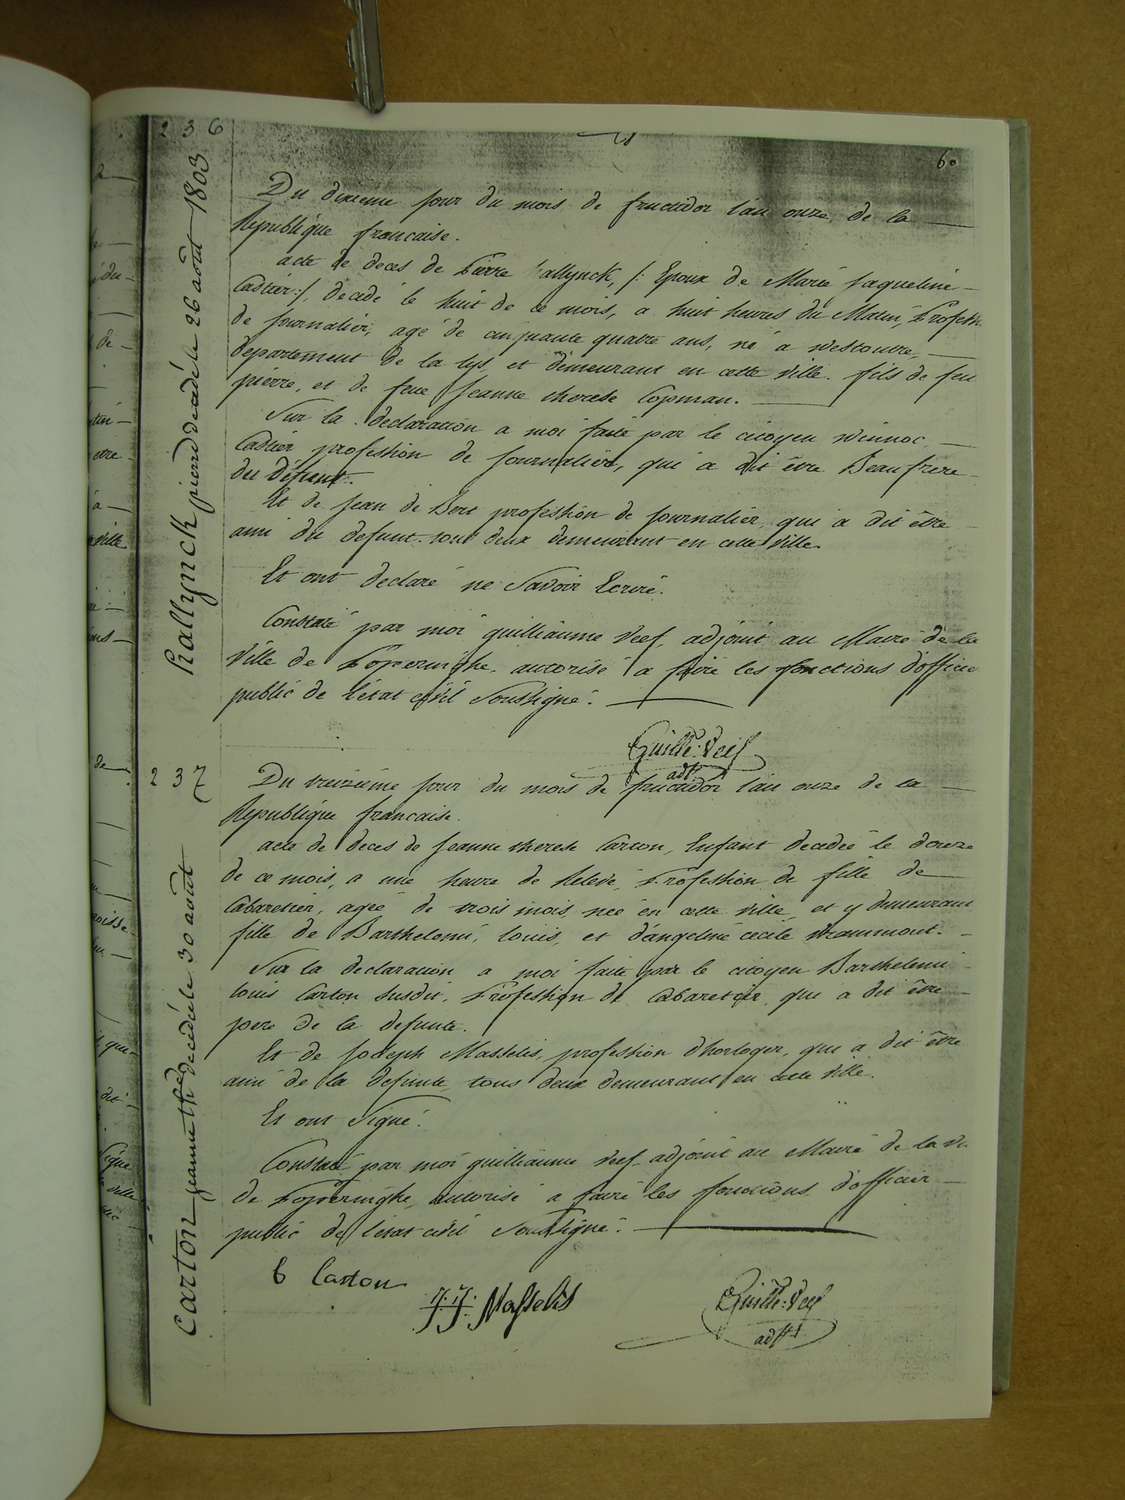 236
60
Rallynck pierre decadé le 26 août 1803
Du dixieme jour du mois de fructidor l'an onze de la
Republique francaise.
acte de deces de Pierre Rallynck, /: Epoux de Marie Jaqueline
Cadier :/, decadé le huit de ce mois, a huit heures du Matin, Profession
de Journalier, agé de cinquante quatre ans, né a Westoutre,
departement de la lys, et demeurant en cette ville. fils de feu
pierre, et de feue Jeanne therese Copman.
Sur la declaration a moi faite par le citoyen Winnoc
Cadier profession de Journalier, qui a dit être Beaufrere
du Défunt.
Et de Jean de Bert profession de Journalier, qui a dit être
ami du defunt. tous deux demeurant en cette ville.
Et ont declaré ne Savoir Ecrire.
Constaté par moi guilliaume Veef, adjoint au Maire de la
Ville de Poperinghe, autorisé a faire les fonctions d'officier
public de l'état civil Soussigné.
Guille: Veef
adjt
237
Carton jeanne the decédé le 30 août
Du treizième jour du mois de fructidor l'an onze de la
Republique francaise.
acte de deces de Jeanne therese Carton, Enfant decedée le douze
de ce mois, a une heure de Relevé, Profession de fille de
Cabaretier, agée de trois mois, née en cette ville, et y demeurant
fille de Barthelemi, louis, et d'angeline cecile
Sur la declaration a moi faite par le citoyen Barthelemi
louis Carton susdit, Profession de Cabaretier, qui a dit être
pere de la defunte.
Et de Joseph Masselis, profession d'horloger, qui a dit être
ami de la defunte tous deux demeurant en cette ville.
Et ont Signé.
Constaté par moi guilliaume Veef adjoint au Maire de la Vi
de Poperinghe, autorisé a faire les fonctions d'officier
public de l'état civil Soussigné.
B Carton
J: J: Masselis
Guille: Veef
adjt